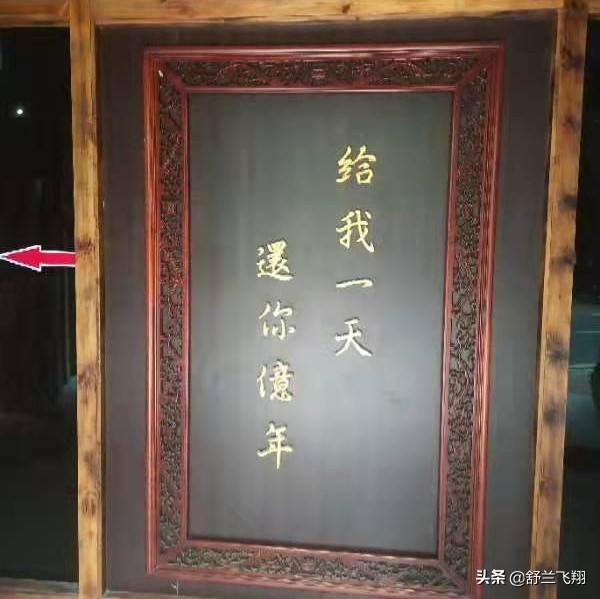 给我一天
還你億年
头条 @舒兰飞翔